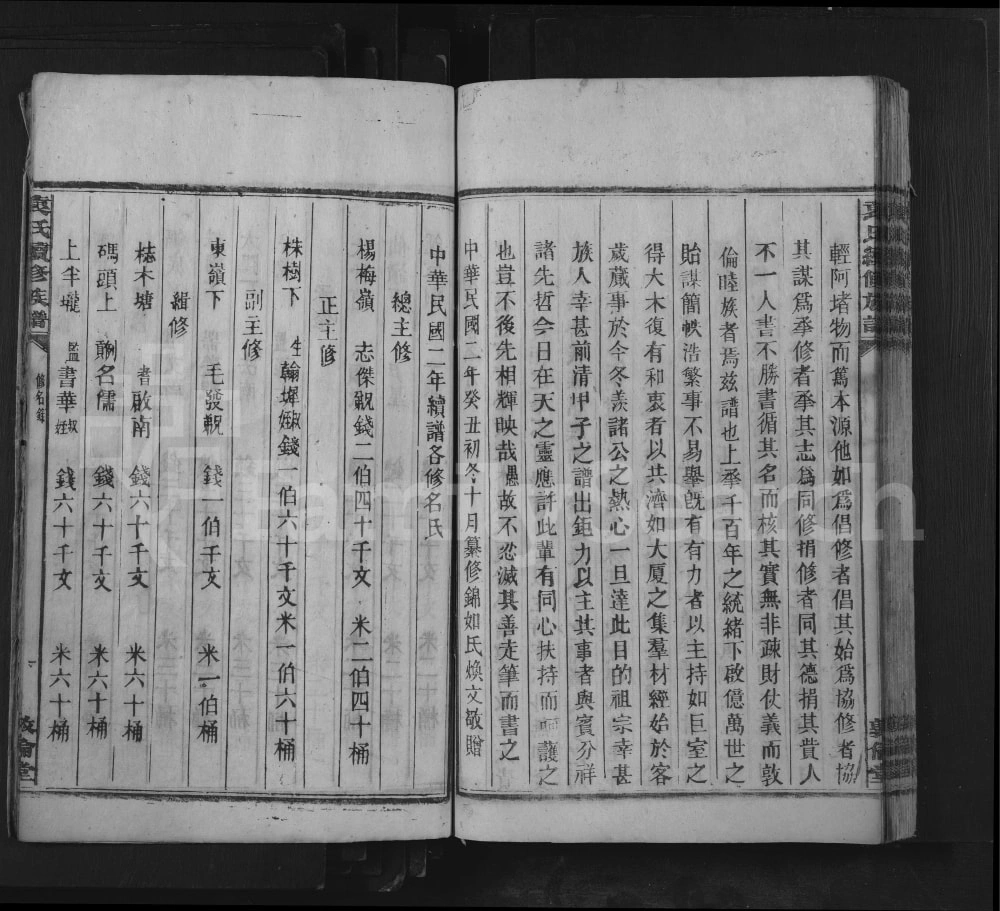 輕阿堵物而篤本源他如爲倡修者倡其始爲協修者協
其謀爲承修者承其志爲同修捐修者同其德捐其貲人
不一人書不勝書循其名而核其實無非疎財仗義而敦
倫睦族者焉茲譜也上承千百年之統緒下啟億萬世之
貽謀簡帙浩繁事不易舉旣有有力者以主持如巨室之
得大木復有和衷者以共濟如大厦之集羣材經始於客
歲蕆事於今冬羨諸公之熱心一旦達此目的祖宗幸甚
族人幸甚前清甲子之譜出鉅力以主其事者與賓分祥
諸先哲会日在天之靈應許此輩有同心扶持而呵護之
也豈不後先相輝映哉愚故不忍滅其善走筆而書之
中華民國二年癸丑初冬十月纂修錦如氏煥文敬贈
中華民國二年續譜各修名氏
總主修
楊梅嶺 志傑覯錢二伯四十千文 米二伯四十桶
正主修
株樹下 生翰墀娰錢一伯六十千文米一伯六十桶
副主修
東嶺下 毛發覯 錢一伯千文 米一伯桶
緝修
梽木塘 耆啟南 錢六十千文 米六十桶
碼頭上 名儒 錢六十千文 米六十桶
上半壠 監書華 錢六十千文 米六十桶
袁氏續修族譜
修名籍
一
敦倫堂
袁氏續修族譜
敦倫堂